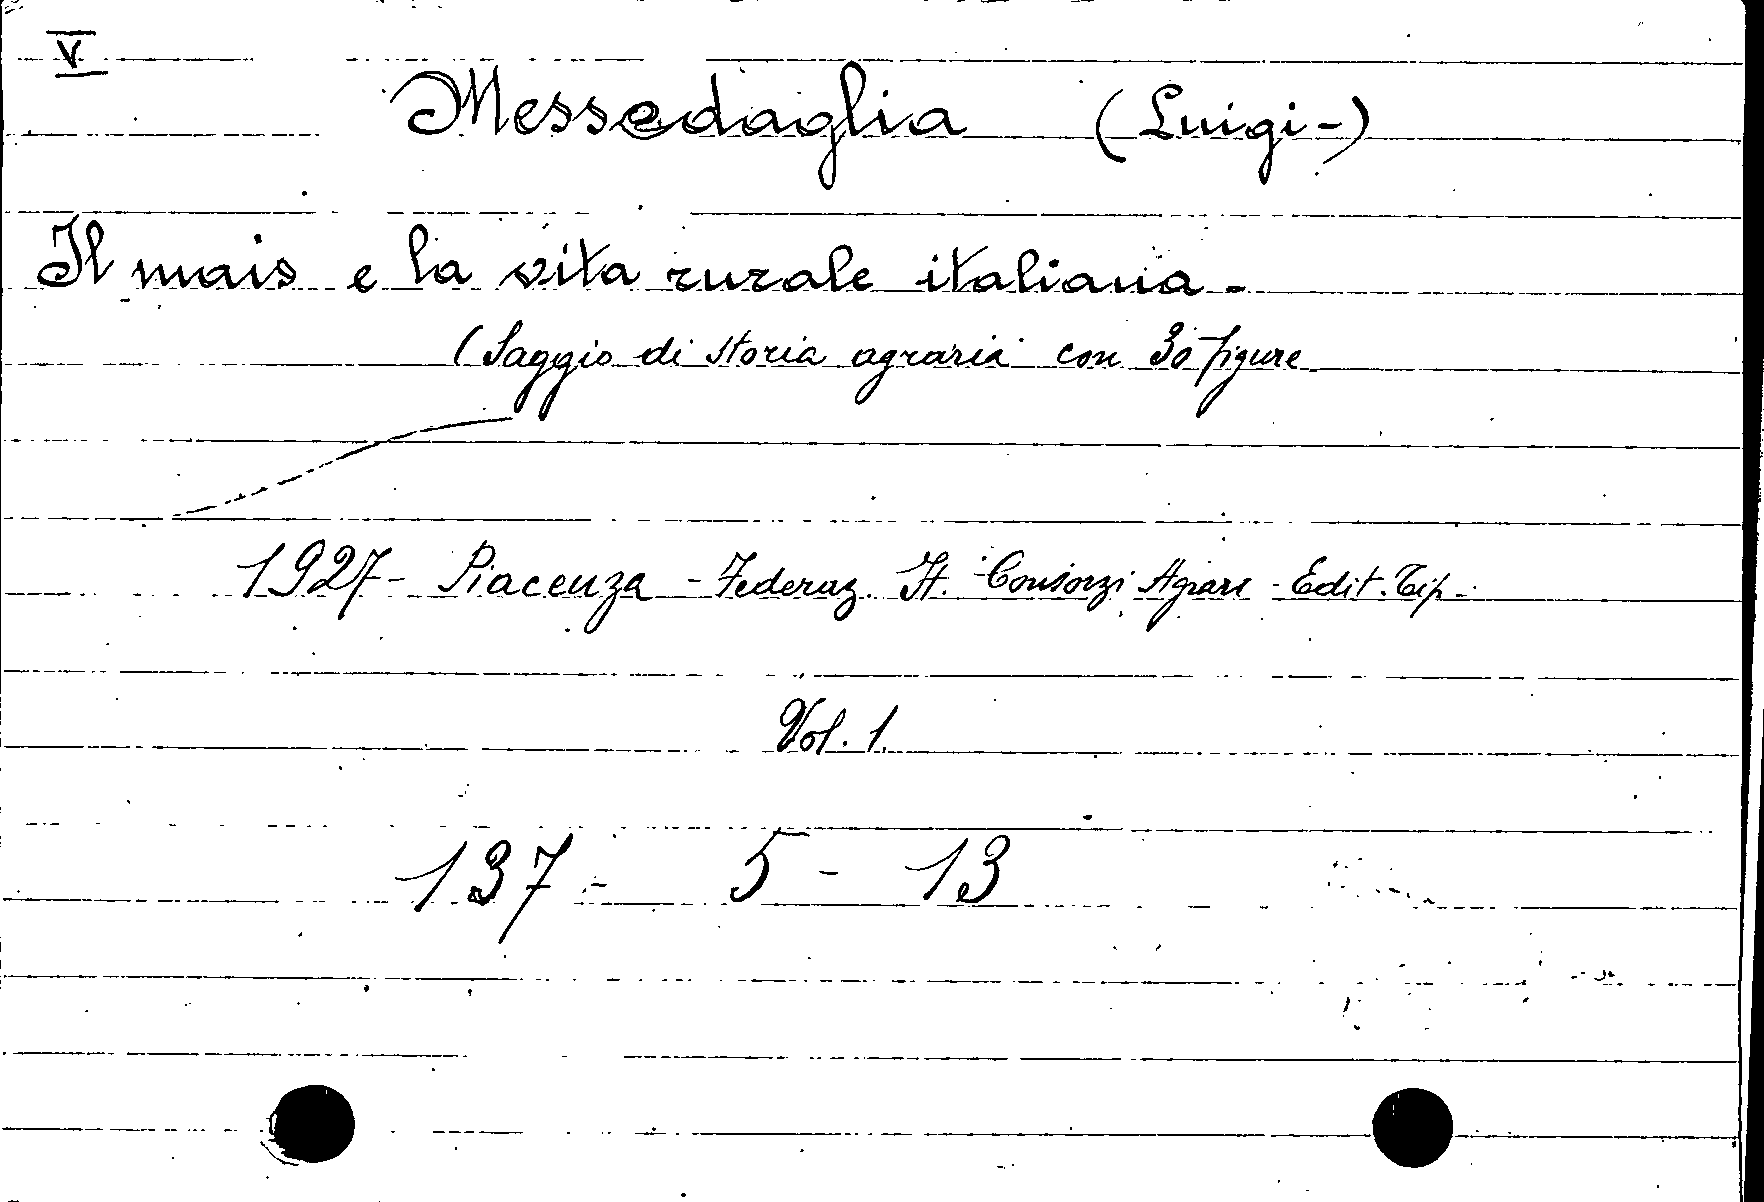 V
Messedaglia (Luigi-)
Il mais e la vita rurale italiana -
(Saggio di storia agraria con 30 figure
1927 - Piacenza - Federaz. It. Consorzi Agrari - Edit. Tip -
Vol. 1.
137 - 5 - 13